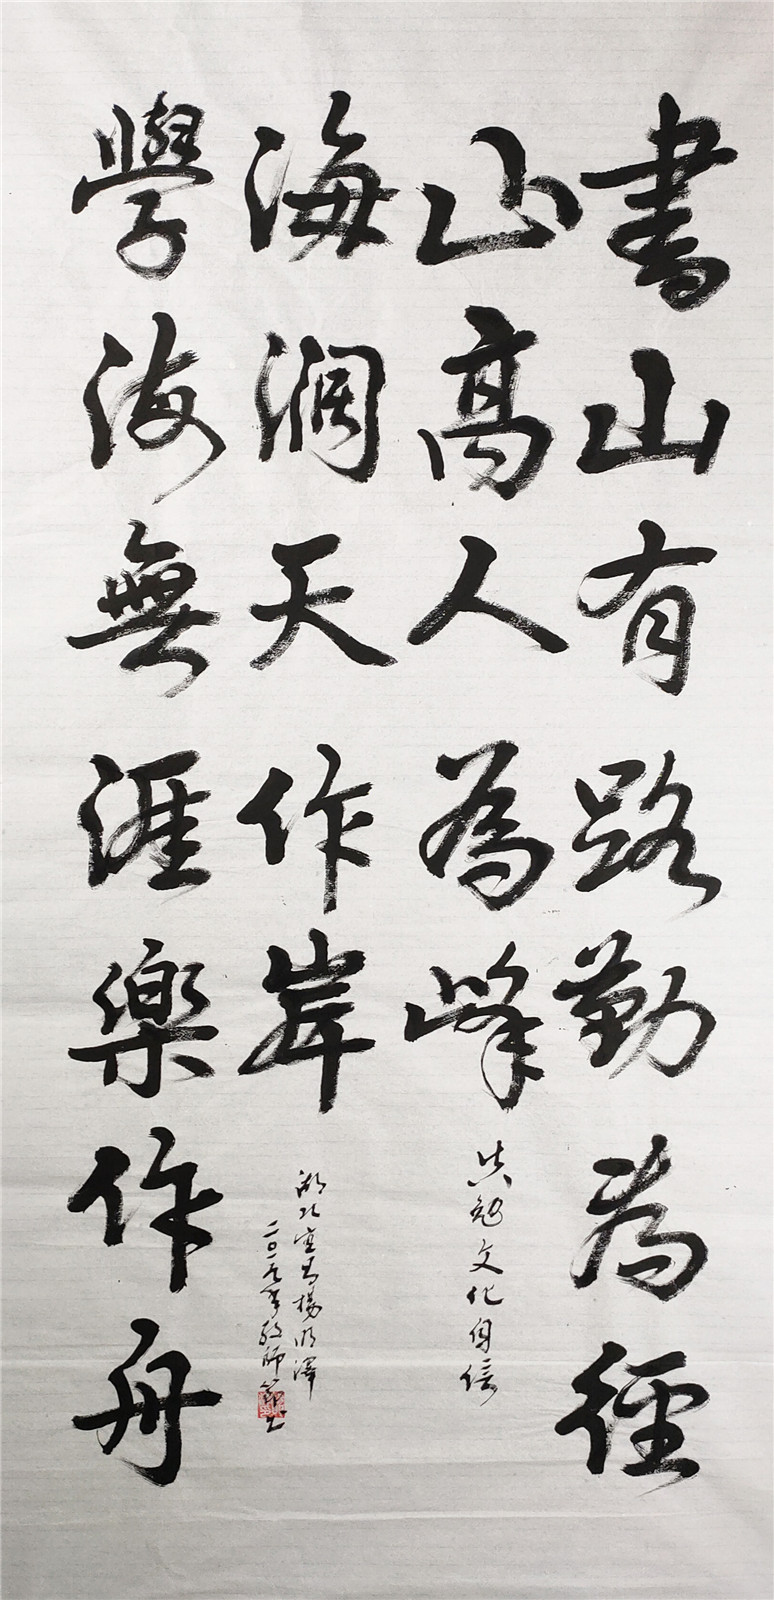 書山有路勤為徑
山高人為峰
共勉文化自信
海濶天作岸
湖北宜昌楊澤
二〇一九年教師節
學海無涯樂作舟